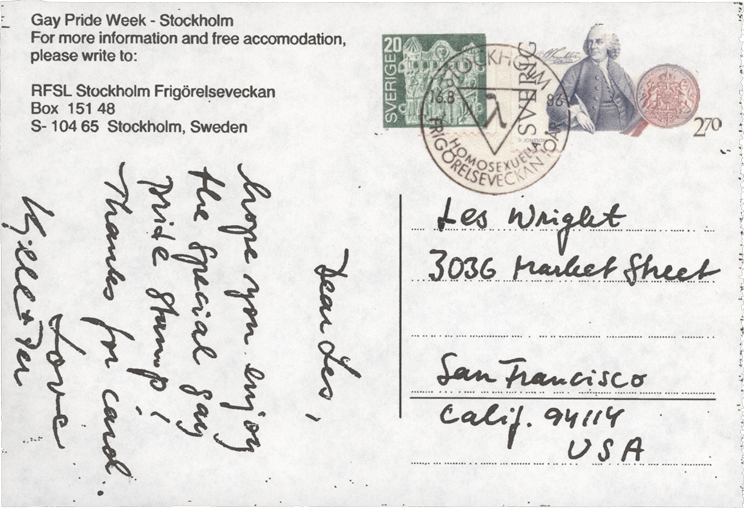 Gay Pride Week - Stockholm
For more information and free accomodation,
please write to:
RFSL Stockholm Frigörelseveckan
Box 151 48
S- 104 65 Stockholm, Sweden
SVERIGE
20
STOCKHOLM
16.8
86
λ
HOMOSEXUELLA
FRIGÖRELSEVECKAN
SVERIGE
2.70
Dear Les,
hope you enjoy
the special gay
pride stamp!
Thanks for card.
Love
Kjell + Per
Les Wright
3036 Market Street
San Francisco
Calif. 94114
USA